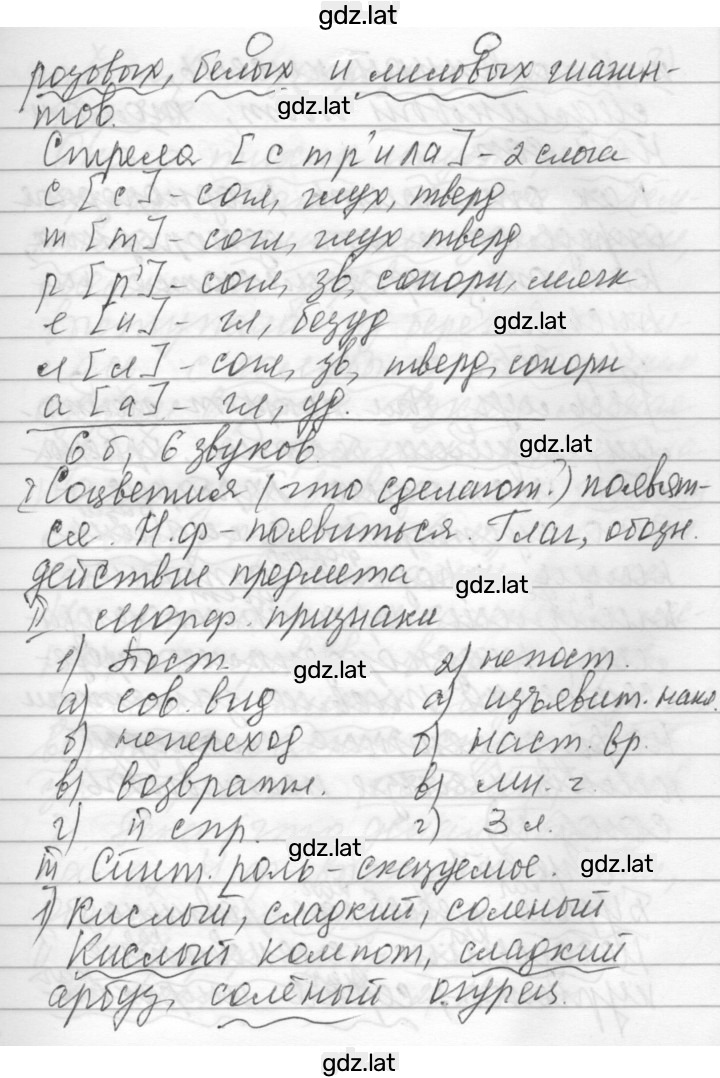 gdz.lat
розовых, белых и лиловых гиацин-
тов. gdz.lat
Стрела [с т р' и л а] - 2 слога
с [с] - согл, глух, тверд
т [т] - согл, глух тверд
р [р'] - согл, зв, сонорн, мягк
е [и] - гл, безуд gdz.lat
л [л] - согл, зв, тверд, сонорн
а [а] - гл, уд.
6 б, 6 звуков. gdz.lat
I Соцветия (что сделают?) появят-
ся. Н.ф - появиться. Глаг, обозн.
действие предмета gdz.lat
II Морф. признаки
1) Пост. gdz.lat 2) непост.
а) сов. вид а) изъявит. накл.
б) непереход б) наст. вр.
в) возвратн. в) мн. г.
г) II спр. gdz.lat г) 3 л.
III. Синт. роль - сказуемое. gdz.lat
1) Кислый, сладкий, соленый
Кислый компот, сладкий
арбуз, солёный огурец.
gdz.lat